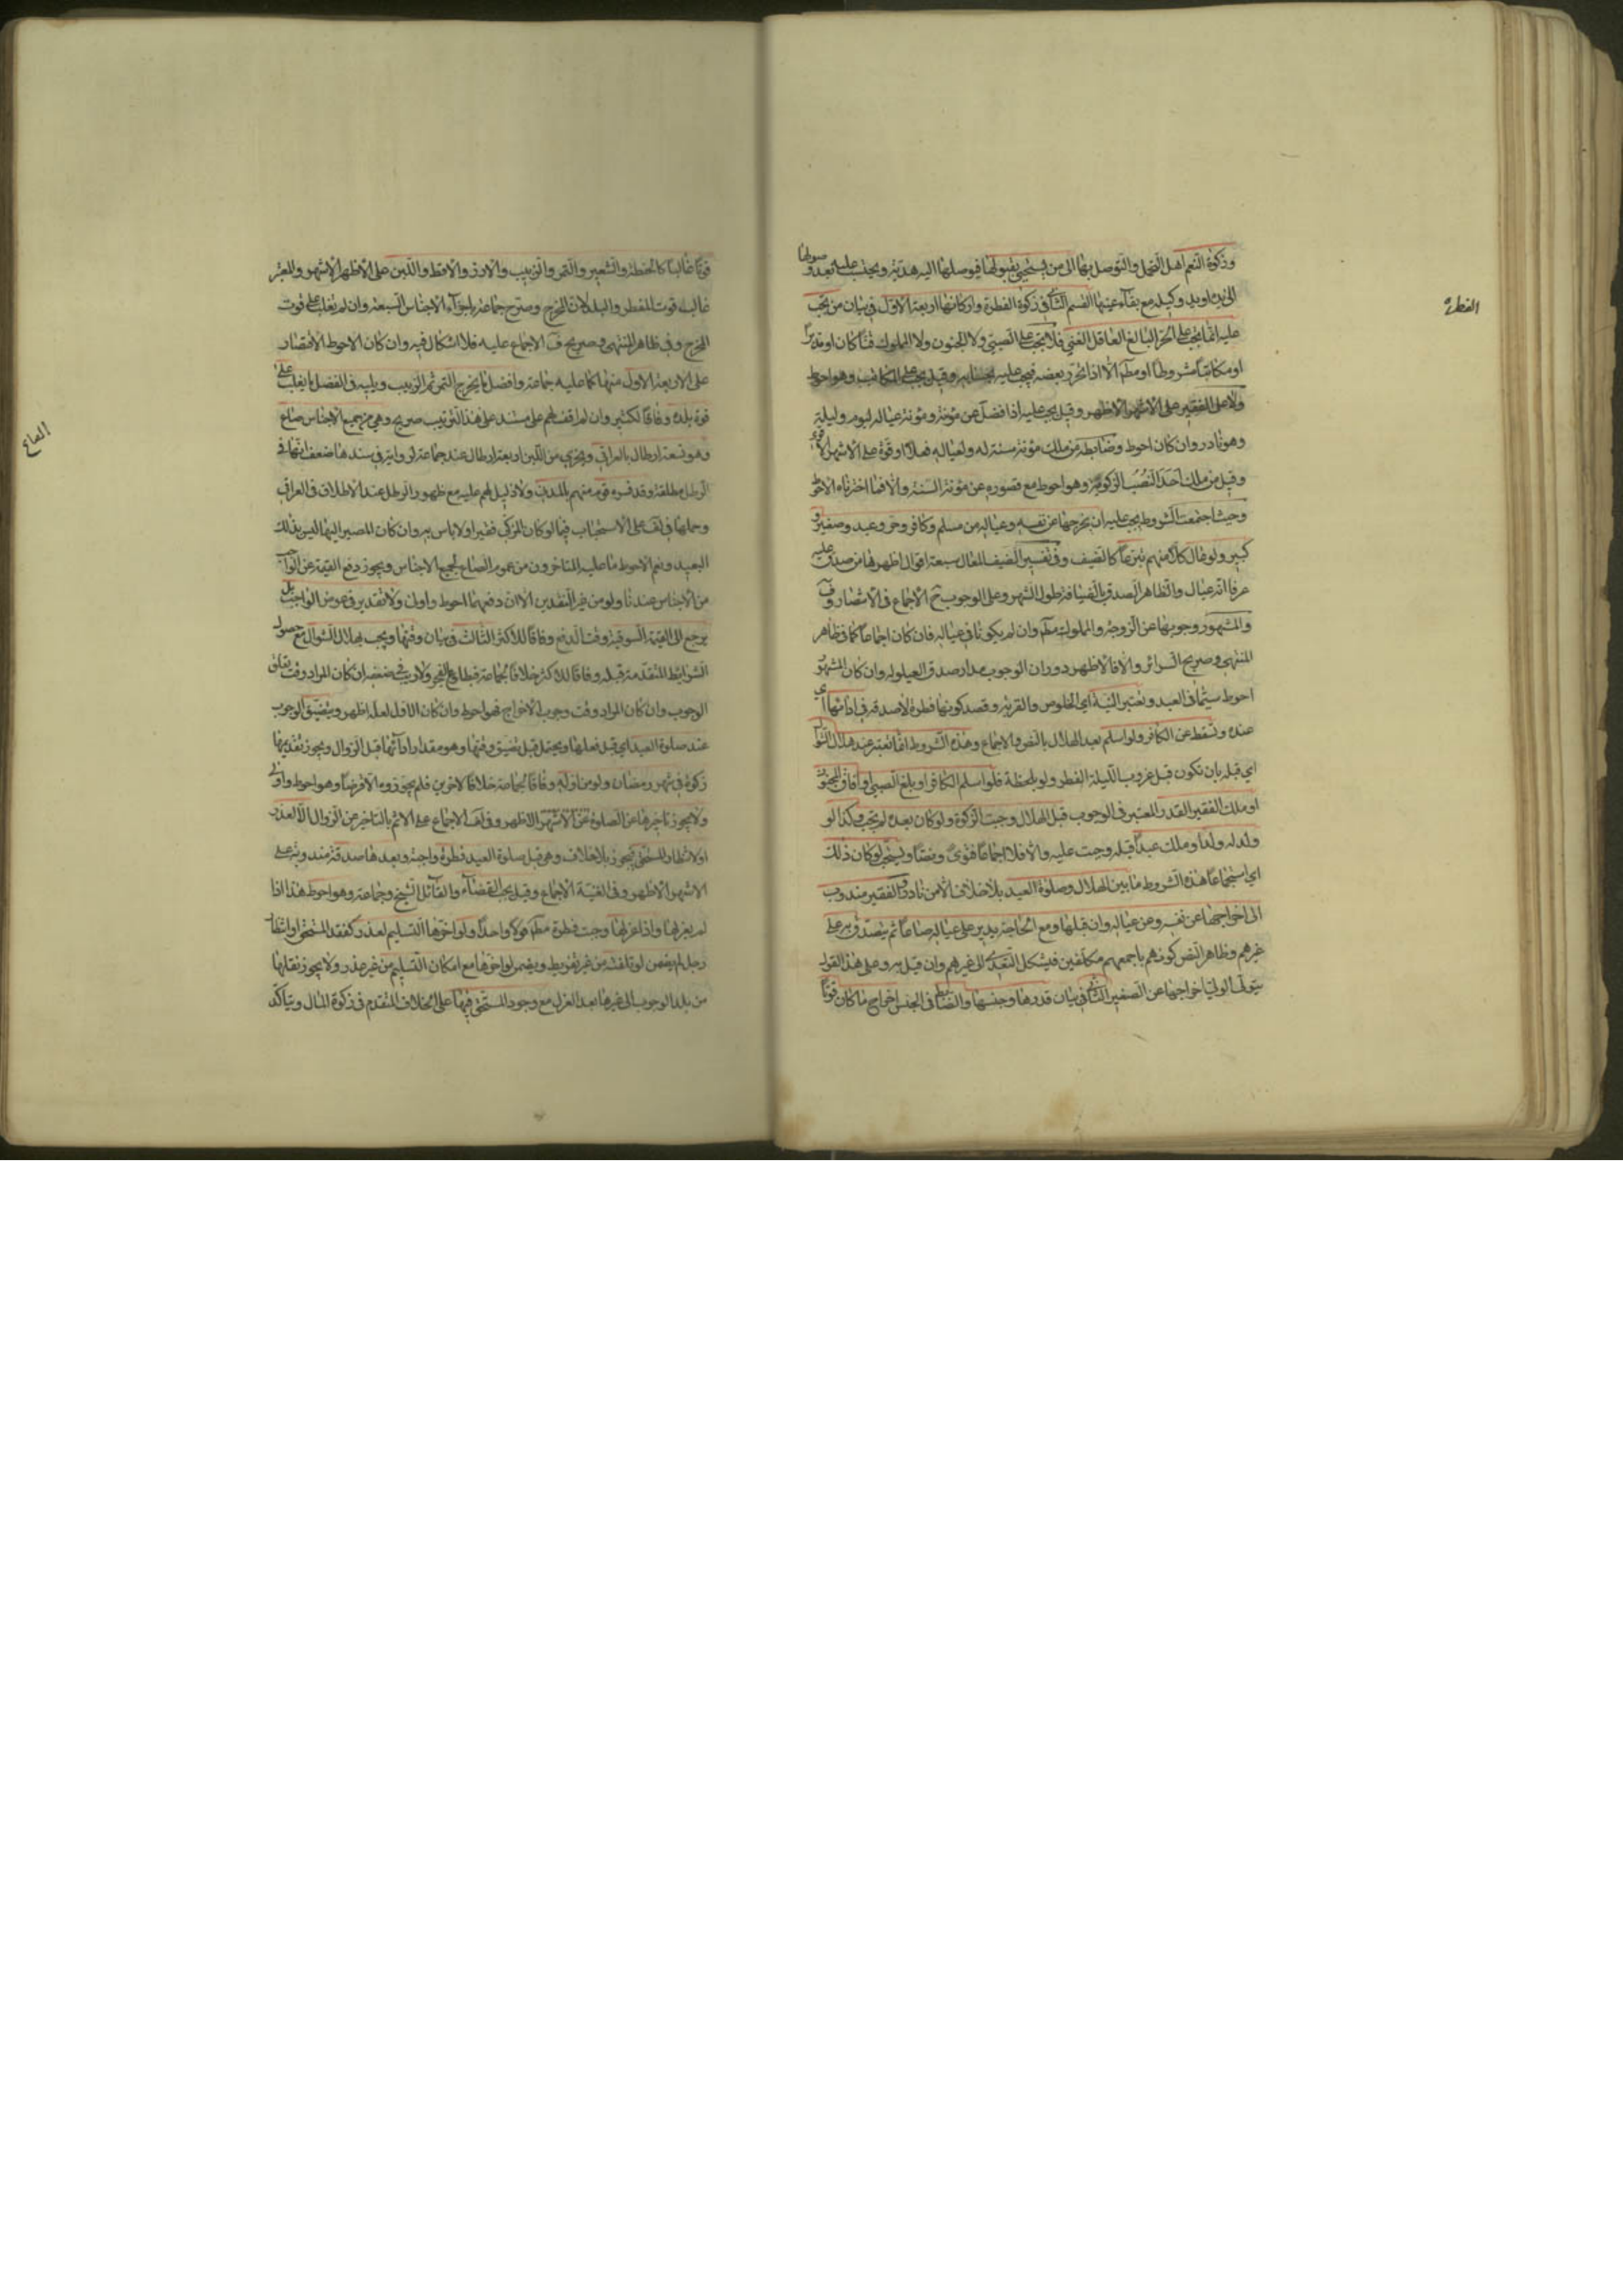 وزكوة النعم اهل التجمل والتوصل بها الى من يستحيي بقبولها فيوصلها اليه هدية ويحتسب عليه بعد وصولها
الى يده او يد وكيله مع بقاء عينها القسم الثاني في زكوة الفطرة واركانها اربعة الاول في بيان من يجب
الفطرة
عليه انما يجب على الحر البالغ العاقل الغني فلا يجب على الصبي ولا المجنون ولا المملوك قنا كان او مدبرا
او مكاتبا مشروطا او مطلقا الا اذا تحرر بعضه فيجب عليه بحسابه وقيل يجب على المكاتب وهو احوط
ولا على الفقير على الاشهر الاظهر وقيل يجب عليه اذا فضل عن مؤنته ومؤنة عياله ليوم وليلة
وهو نادر وان كان احوط وضابطه من ملك مؤنة سنة له ولعياله فعلا او قوة على الاشهر
وقيل من ملك احد النصب الزكوية وهو احوط مع قصوره عن مؤنة السنة والا فما اخترناه الاحوط
وحيث اجتمعت الشروط يجب عليه ان يخرجها عن نفسه وعياله من مسلم وكافر وحر وعبد وصغير و
كبير ولو عال كلا منهم تبرعا كالضيف وفي تفسير الضيف المعال سبعة اقوال اظهرها من صدق عليه
عرفا انه عيال والظاهر الصدق بالضيافة طول الشهر وعلى الوجوب ح الاجماع في الانتصار و ف
والمشهور وجوبها عن الزوجة والمملوك مطلقا وان لم يكونا في عياله فان كان اجماعا كما في ظاهر
المنتهى وصريح السرائر والا فالاظهر دوران الوجوب مدار صدق العيلولة وان كان المشهور
احوط سيما في العبد وتعتبر النية اي الخلوص والقربة وقصد كونها فطرة لا صدقة في ادائها اي
عنده وتسقط عن الكافر ولو اسلم بعد الهلال بالنص والاجماع وهذه الشروط انما تعتبر عند هلال شوال
اي قبله بان تكون قبل غروب الليلة الفطر ولو بلحظة فلو اسلم الكافر او بلغ الصبي او افاق المجنون
او ملك الفقير القدر المعتبر في الوجوب قبل الهلال وجبت الزكوة ولو كان بعده لم تجب وكذا لو
ولد له ولد او ملك عبدا قبله وجبت عليه والا فلا اجماعا فتوى ونصا ويستحب لو كان ذلك
اي استجماع هذه الشروط ما بين الهلال وصلوة العيد بلا خلاف الا من نادر والفقير مندوب
الى اخراجها عن نفسه وعن عياله وان قبلها ومع الحاجة يدير على عياله صاعا ثم يتصدق به على
غيرهم وظاهر النص كونهم باجمعهم مكلفين فيشكل التعدي الى غيرهم وان قيل به وعلى هذا القول
يتولى الولي اخراجها عن الصغير الثاني في بيان قدرها وجنسها والضابط في الجنس اخراج ما كان قوتا
قوتا غالبا كالحنطة والشعير والتمر والزبيب والارز والاقط واللبن على الاظهر الاشهر والمعتبر
غالب قوت المفطر والبلد لا المخرج وصرح جماعة باجزاء الاجناس السبعة وان لم يغلب على قوت
المخرج وفي ظاهر المنتهى وصريح ف الاجماع عليه فلا اشكال فيه وان كان الاحوط الاقتصار
على الاربعة الاول منها كما عليه جماعة وافضل ما يخرج التمر ثم الزبيب ويليه في الفضل ما يغلب على
قوة بلده وفاقا لكثير وان لم اقف لهم على مستند على هذا الترتيب صريح وهي من جميع الاجناس صاع
الصاع
وهو تسعة ارطال بالعراقي ويجزي من اللبن اربعة ارطال عند جماعة لرواية في سندها ضعف لكنها في
الرطل مطلقة وقد فسره قوم منهم بالمدني ولا دليل لهم عليه مع ظهور الرطل عند الاطلاق في العراقي
وحملها في لف على الاستحباب فيما لو كان المزكي فقيرا ولا باس به وان كان المصير اليها ليس بذلك
البعيد ونعم الاحوط ما عليه المتاخرون من عموم الصاع لجميع الاجناس ويجوز دفع القيمة عن الواجب
من الاجناس عندنا ولو من غير النقدين الا ان دفعهما احوط واولى ولا تقدير في عوض الواجب بل
يرجع الى القيمة السوقية وقت الدفع وفاقا للاكثر الثالث في بيان وقتها ويجب بهلال الشوال مع حصول
الشرائط المتقدمة قبله وفاقا للاكثر خلافا لجماعة فبطلوع الفجر ولا ريب في ضعفه ان كان المراد وقت تعلق
الوجوب وان كان المراد وقت وجوب الاخراج فهو احوط وان كان الاول لعله اظهر ويتضيق الوجوب
عند صلوة العيد اي قبل فعلها ويحتمل قبل تضيق وقتها وهو مقدار ادائها قبل الزوال ويجوز تقديمها
زكوة في شهر رمضان ولو من اوله وفاقا لجماعة خلافا لاخرين فلم يجوزوه الا قرضا وهو احوط واولى
ولا يجوز تاخيرها عن الصلوة على الاشهر الاظهر وفي لف الاجماع على الاثم بالتاخير عن الزوال الا لعذر
او لانتظار المستحق فيجوز بلا خلاف وهي قبل صلوة العيد فطرة واجبة وبعدها صدقة مندوبة على
الاشهر الاظهر وفي الغنية الاجماع وقيل يجب القضاء والقائل الشيخ وجماعة وهو احوط هذا اذا
لم يعزلها واذا عزلها وجبت فطرة مطلقا قولا واحدا ولو اخر ها التسليم لعذر كفقد المستحق او انتظار
رجل لم يضمن لو تلفت من غير تفريط ويضمن لو اخرها مع امكان التسليم من غير عذر ولا يجوز نقلها
من بلد الوجوب الى غيرها بعد العزل مع وجود المستحق فيها على الخلاف المتقدم في زكوة المال ويتأكد